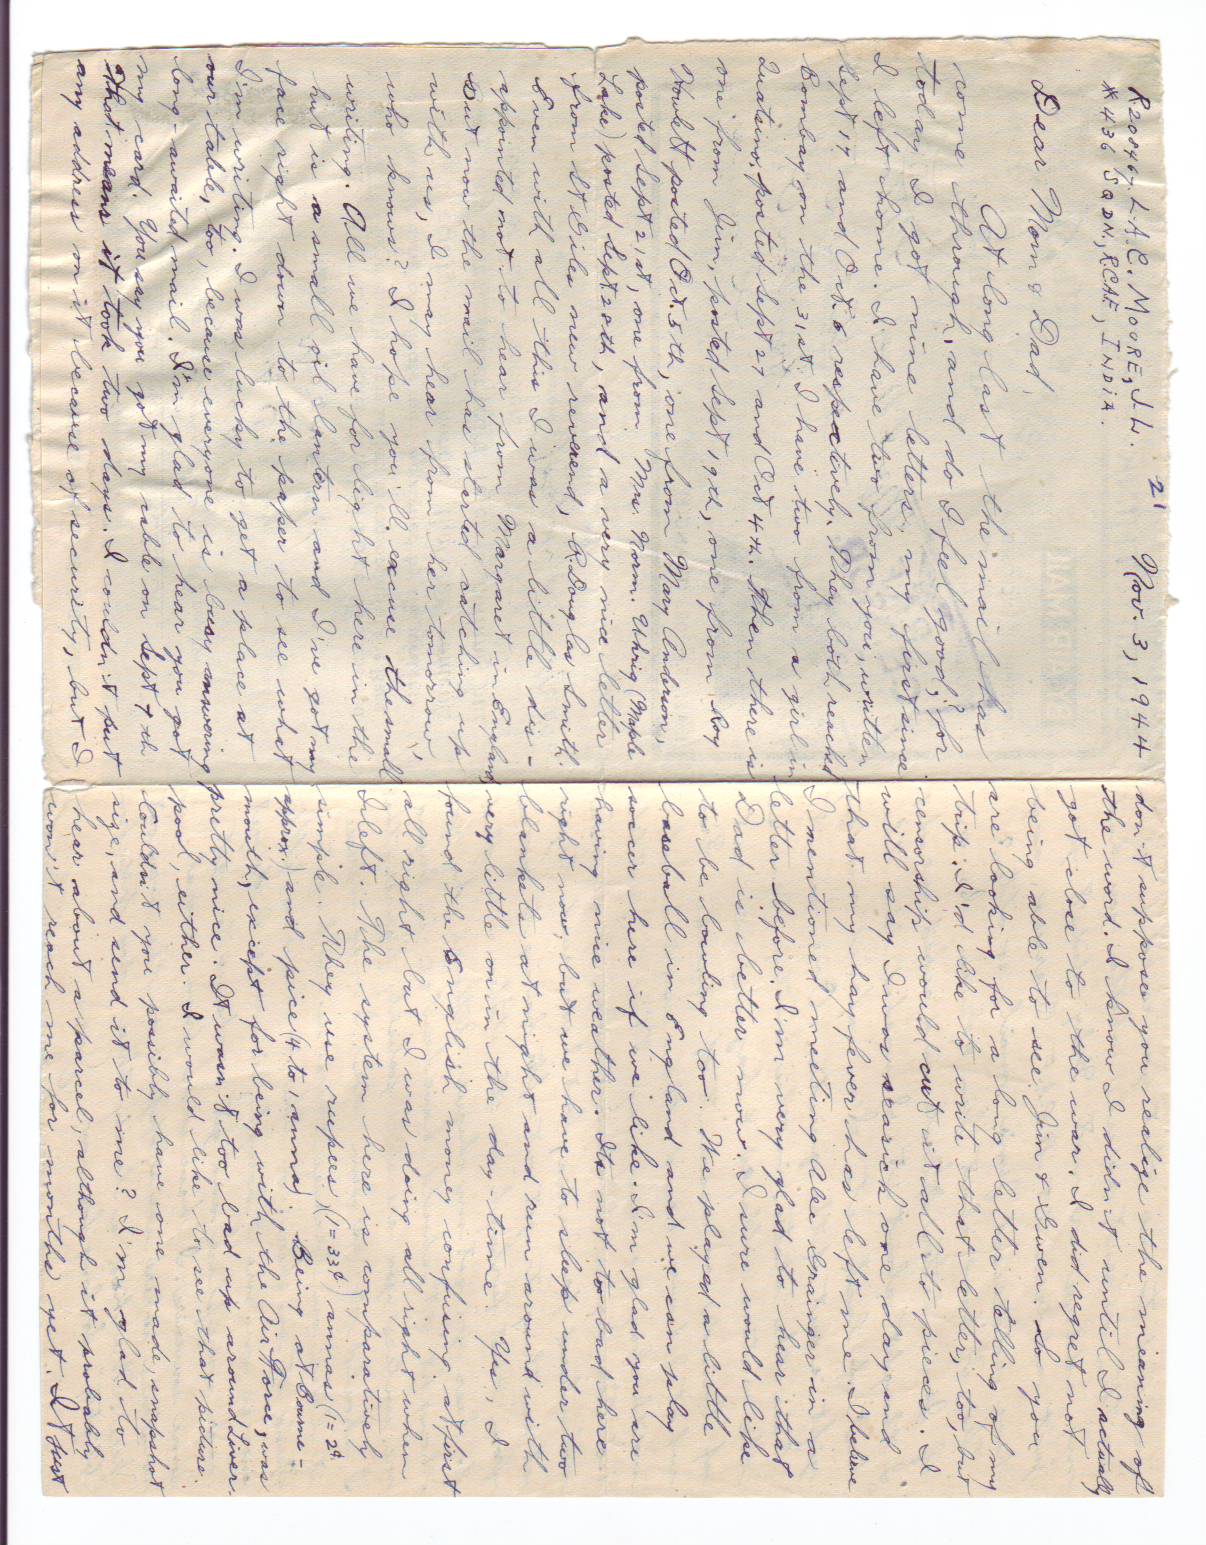 R208467 L.A.C. MOORE, J.L.
# 436 SQDN, RCAF, INDIA.
21
Nov. 3, 1944
Dear Mom & Dad,
At long last the mail has
come through, and do I feel good, for
today I got nine letters, my first since
I left home. I have two from you, written
Sept 17 and Oct. 6 respectively. They both reached
Bombay on the 31st. I have two from a girl in
posted Sept 27 and Oct 4th. Then there is
one from Jim, posted Sept 19th, one from Roy
posted Oct. 5th, one from Mary Anderson,
posted Sept 21st, one from Mrs. Norm. Uhrig (Maple
Lake) posted Sept 28th, and a very nice letter
from St Giles new reverend, R. Douglas Smith.
Even with all this I was a little dis-
appointed not to hear from Margaret in England
But now the mail has started catching up
with us, I may hear from her tomorrow,
who knows? I hope you'll excuse the small
writing. All we have for light here in the
hut is a small oil lantern and I've got my
face right down to the paper to see what
I'm writing. I was lucky to get a place at
our table, too, because everyone is busy answering
long-awaited mail. I'm glad to hear you got
my card. You say you got my cable on Sept 7th
that means it took two days. I couldn't put
any address on it because of security, but I
don't suppose you realize the meaning of
the word. I know I didn't until I actually
got close to the war. I did regret not
being able to see Jim & Gwen. So you
are looking for a long letter telling of my
trip. I'd like to write that letter, too, but
censorship would cut it all to pieces. I
will say I was seasick one day and
that my hayfever has left me. I believe
I mentioned meeting Abe Grainger in a
letter before. I'm very glad to hear that
Dad is better now. I sure would like
to be bowling too. We played a little
baseball in England and we can play
soccer here if we like. I'm glad you are
having nice weather. Its not too bad here
right now, but we have to sleep under two
blankets at night and run around with
very little on in the day-time. Yes, I
found the English money confusing at first
all right but I was doing all right when
I left. The system here is comparatively
simple. They use rupees (1=33¢) annas (1=2¢
approx.) and pice (4 to 1 anna) Being at Bourne-
mouth, except for being with the Air Force, was
pretty nice. It wasn't too bad up around Liver-
pool, either. I would like to see that picture.
Couldn't you possibly have one made, snapshot
size, and send it to me? I'm glad to
hear about a parcel, although it probably
won't reach me for months yet. I just